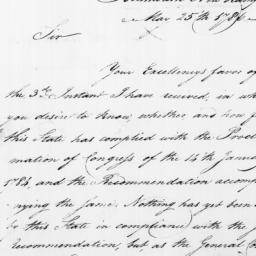 Mar 25th 1784
Sir
Your Excellencys favor of
the 3rd Instant I have received, in wh
you desire to know, whether and how f
this State has complied with the Procl
mation of Congress of the 14th Janua
1784 and the Recommendation accomp
nying the same. Nothing has yet been
by this State in compliance with the
recommendation, but, as the General Co